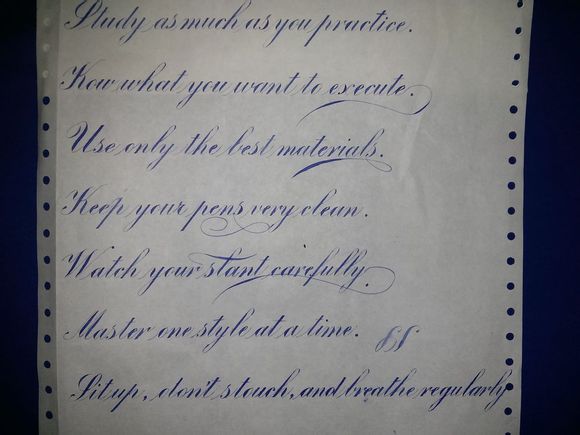 Study as much as you practice.
Kow what you want to execute.
Use only the best materials.
Keep your pens very clean.
Watch your slant carefully.
Master one style at a time.
Sit up, don't slouch, and breathe regularly